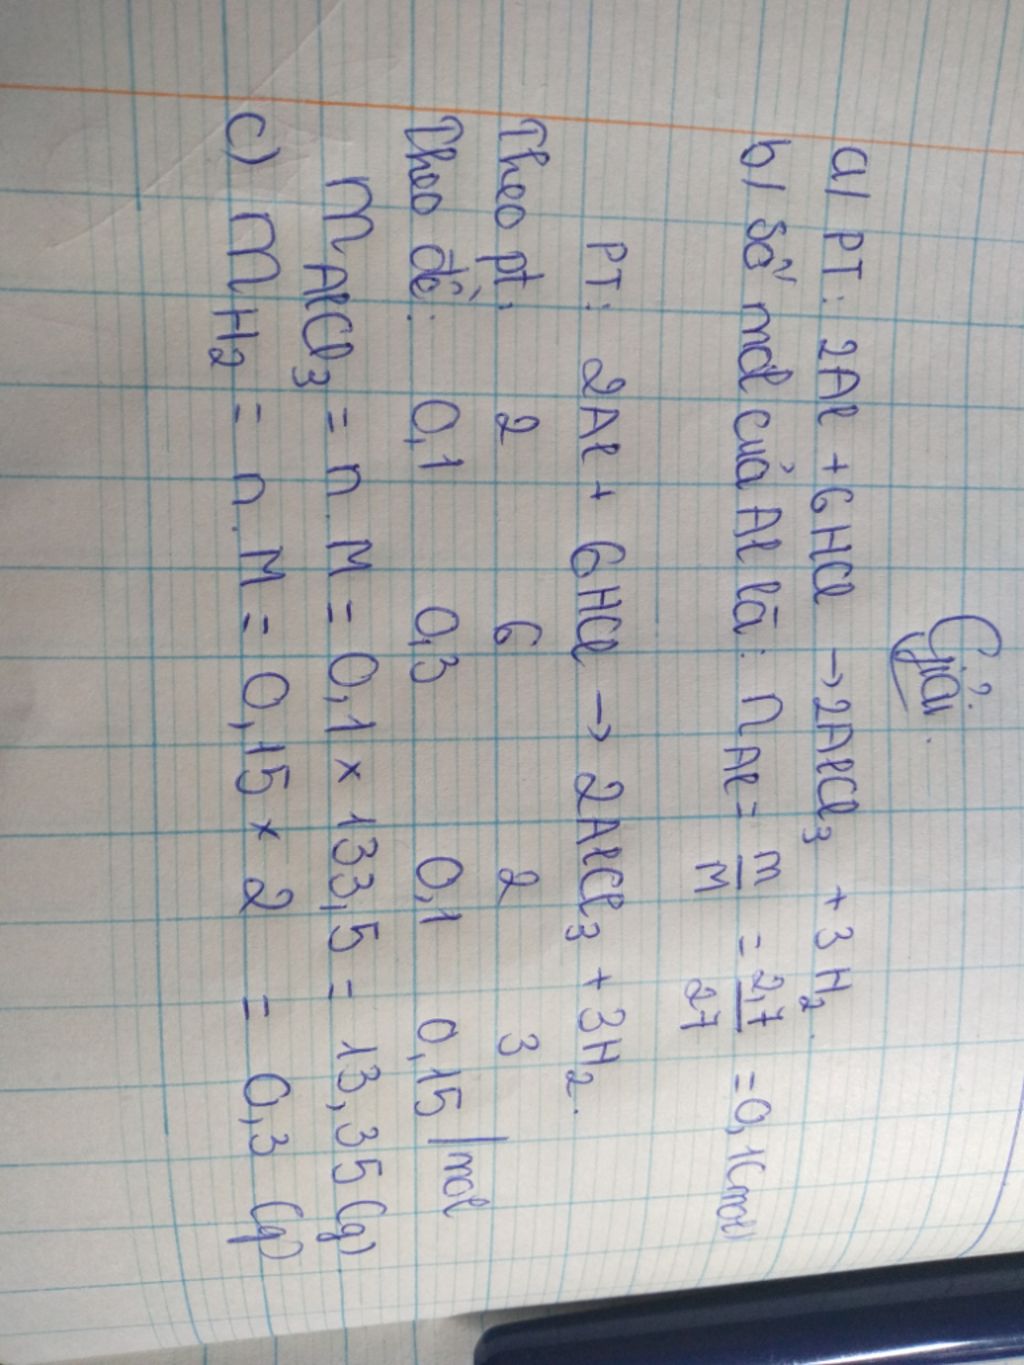 Giải.
a/ PT: 2Al + 6HCl → 2AlCl₃ + 3H₂.
b/ Số mol của Al là: nAl = m/M = 2,7/27 = 0,1(mol)
PT: 2Al + 6HCl → 2AlCl₃ + 3H₂.
Theo pt: 2 6 2 3
Theo đề: 0,1 0,3 0,1 0,15 /mol
mAlCl₃ = n.M = 0,1 × 133,5 = 13,35(g)
c) mH₂ = n.M = 0,15 × 2 = 0,3 (g)